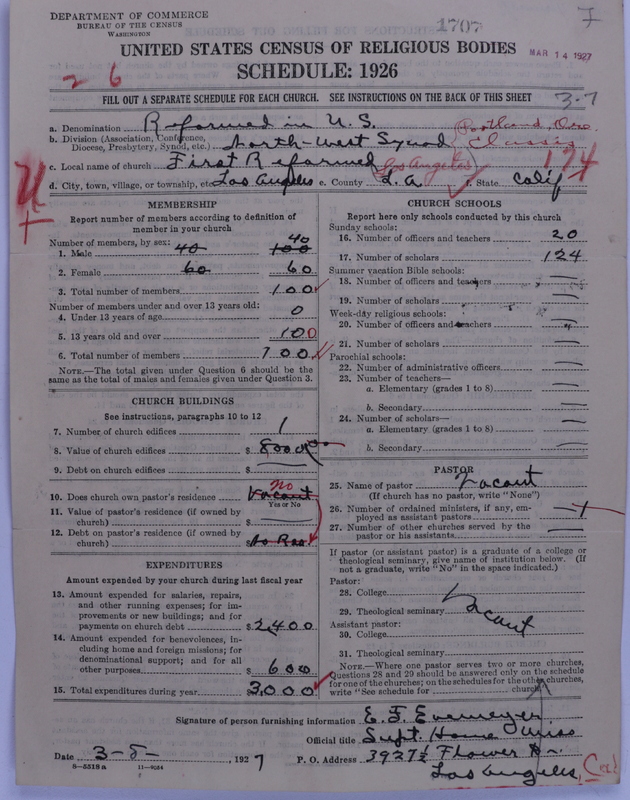 DEPARTMENT OF COMMERCE
BUREAU OF THE CENSUS
WASHINGTON
1707
7
MAR 14 1927
UNITED STATES CENSUS OF RELIGIOUS BODIES
SCHEDULE: 1926
2 6
FILL OUT A SEPARATE SCHEDULE FOR EACH CHURCH. SEE INSTRUCTIONS ON THE BACK OF THIS SHEET
3-7
a. Denomination Reformed in U.S.
b. Division (Association, Conference, Diocese, Presbytery, Synod, etc.) North-West Synod Portland, Ore. Classis
c. Local name of church First Reformed Los Angeles 124
d. City, town, village, or township, etc. Los Angeles e. County L.A. f. State Calif
MEMBERSHIP
Report number of members according to definition of
member in your church
Number of members, by sex: 40
1. Male 40 100
2. Female 60 60
3. Total number of members 100
Number of members under and over 13 years old:
4. Under 13 years of age 0
5. 13 years old and over 100
6. Total number of members 100
NOTE.—The total given under Question 6 should be
same as the total of males and females given under Question 3.
CHURCH BUILDINGS
See instructions, paragraphs 10 to 12
7. Number of church edifices 1
8. Value of church edifices $ 8000
9. Debt on church edifices $
no
10. Does church own pastor's residence Vacant
Yes or No
11. Value of pastor's residence (if owned by
church) $
12. Debt on pastor's residence (if owned by
church) $ No Res
EXPENDITURES
Amount expended by your church during last fiscal year
13. Amount expended for salaries, repairs,
and other running expenses; for im-
provements or new buildings; and for
payments on church debt $ 2400
14. Amount expended for benevolences, in-
cluding home and foreign missions; for
denominational support; and for all
other purposes $ 600
15. Total expenditures during year $ 3,000
CHURCH SCHOOLS
Report here only schools conducted by this church
Sunday schools:
16. Number of officers and teachers 20
17. Number of scholars 124
Summer vacation Bible schools:
18. Number of officers and teachers
19. Number of scholars
Week-day religious schools:
20. Number of officers and teachers
21. Number of scholars
Parochial schools:
22. Number of administrative officers
23. Number of teachers—
a. Elementary (grades 1 to 8)
b. Secondary
24. Number of scholars—
a. Elementary (grades 1 to 8)
b. Secondary
PASTOR
25. Name of pastor Vacant
(If church has no pastor, write "None")
26. Number of ordained ministers, if any, em-
ployed as assistant pastors
27. Number of other churches served by the
pastor or his assistants
If pastor (or assistant pastor) is a graduate of a college or
theological seminary, give name of institution below. (If
not a graduate, write "No" in the space indicated.)
Pastor:
28. College
29. Theological seminary Vacant
Assistant pastor:
30. College
31. Theological seminary
NOTE.—Where one pastor serves two or more churches,
Questions 28 and 29 should be answered only on the schedule
for one of the churches; on the schedules for the other churches,
write "See schedule for church"
Signature of person furnishing information E. F. Evemeyer
Official title Supt. Home Miss
Date 3-8-, 1927 P. O. Address 3927½ Flower Dr.
8—5518a 11—9034 Los Angeles, Cal